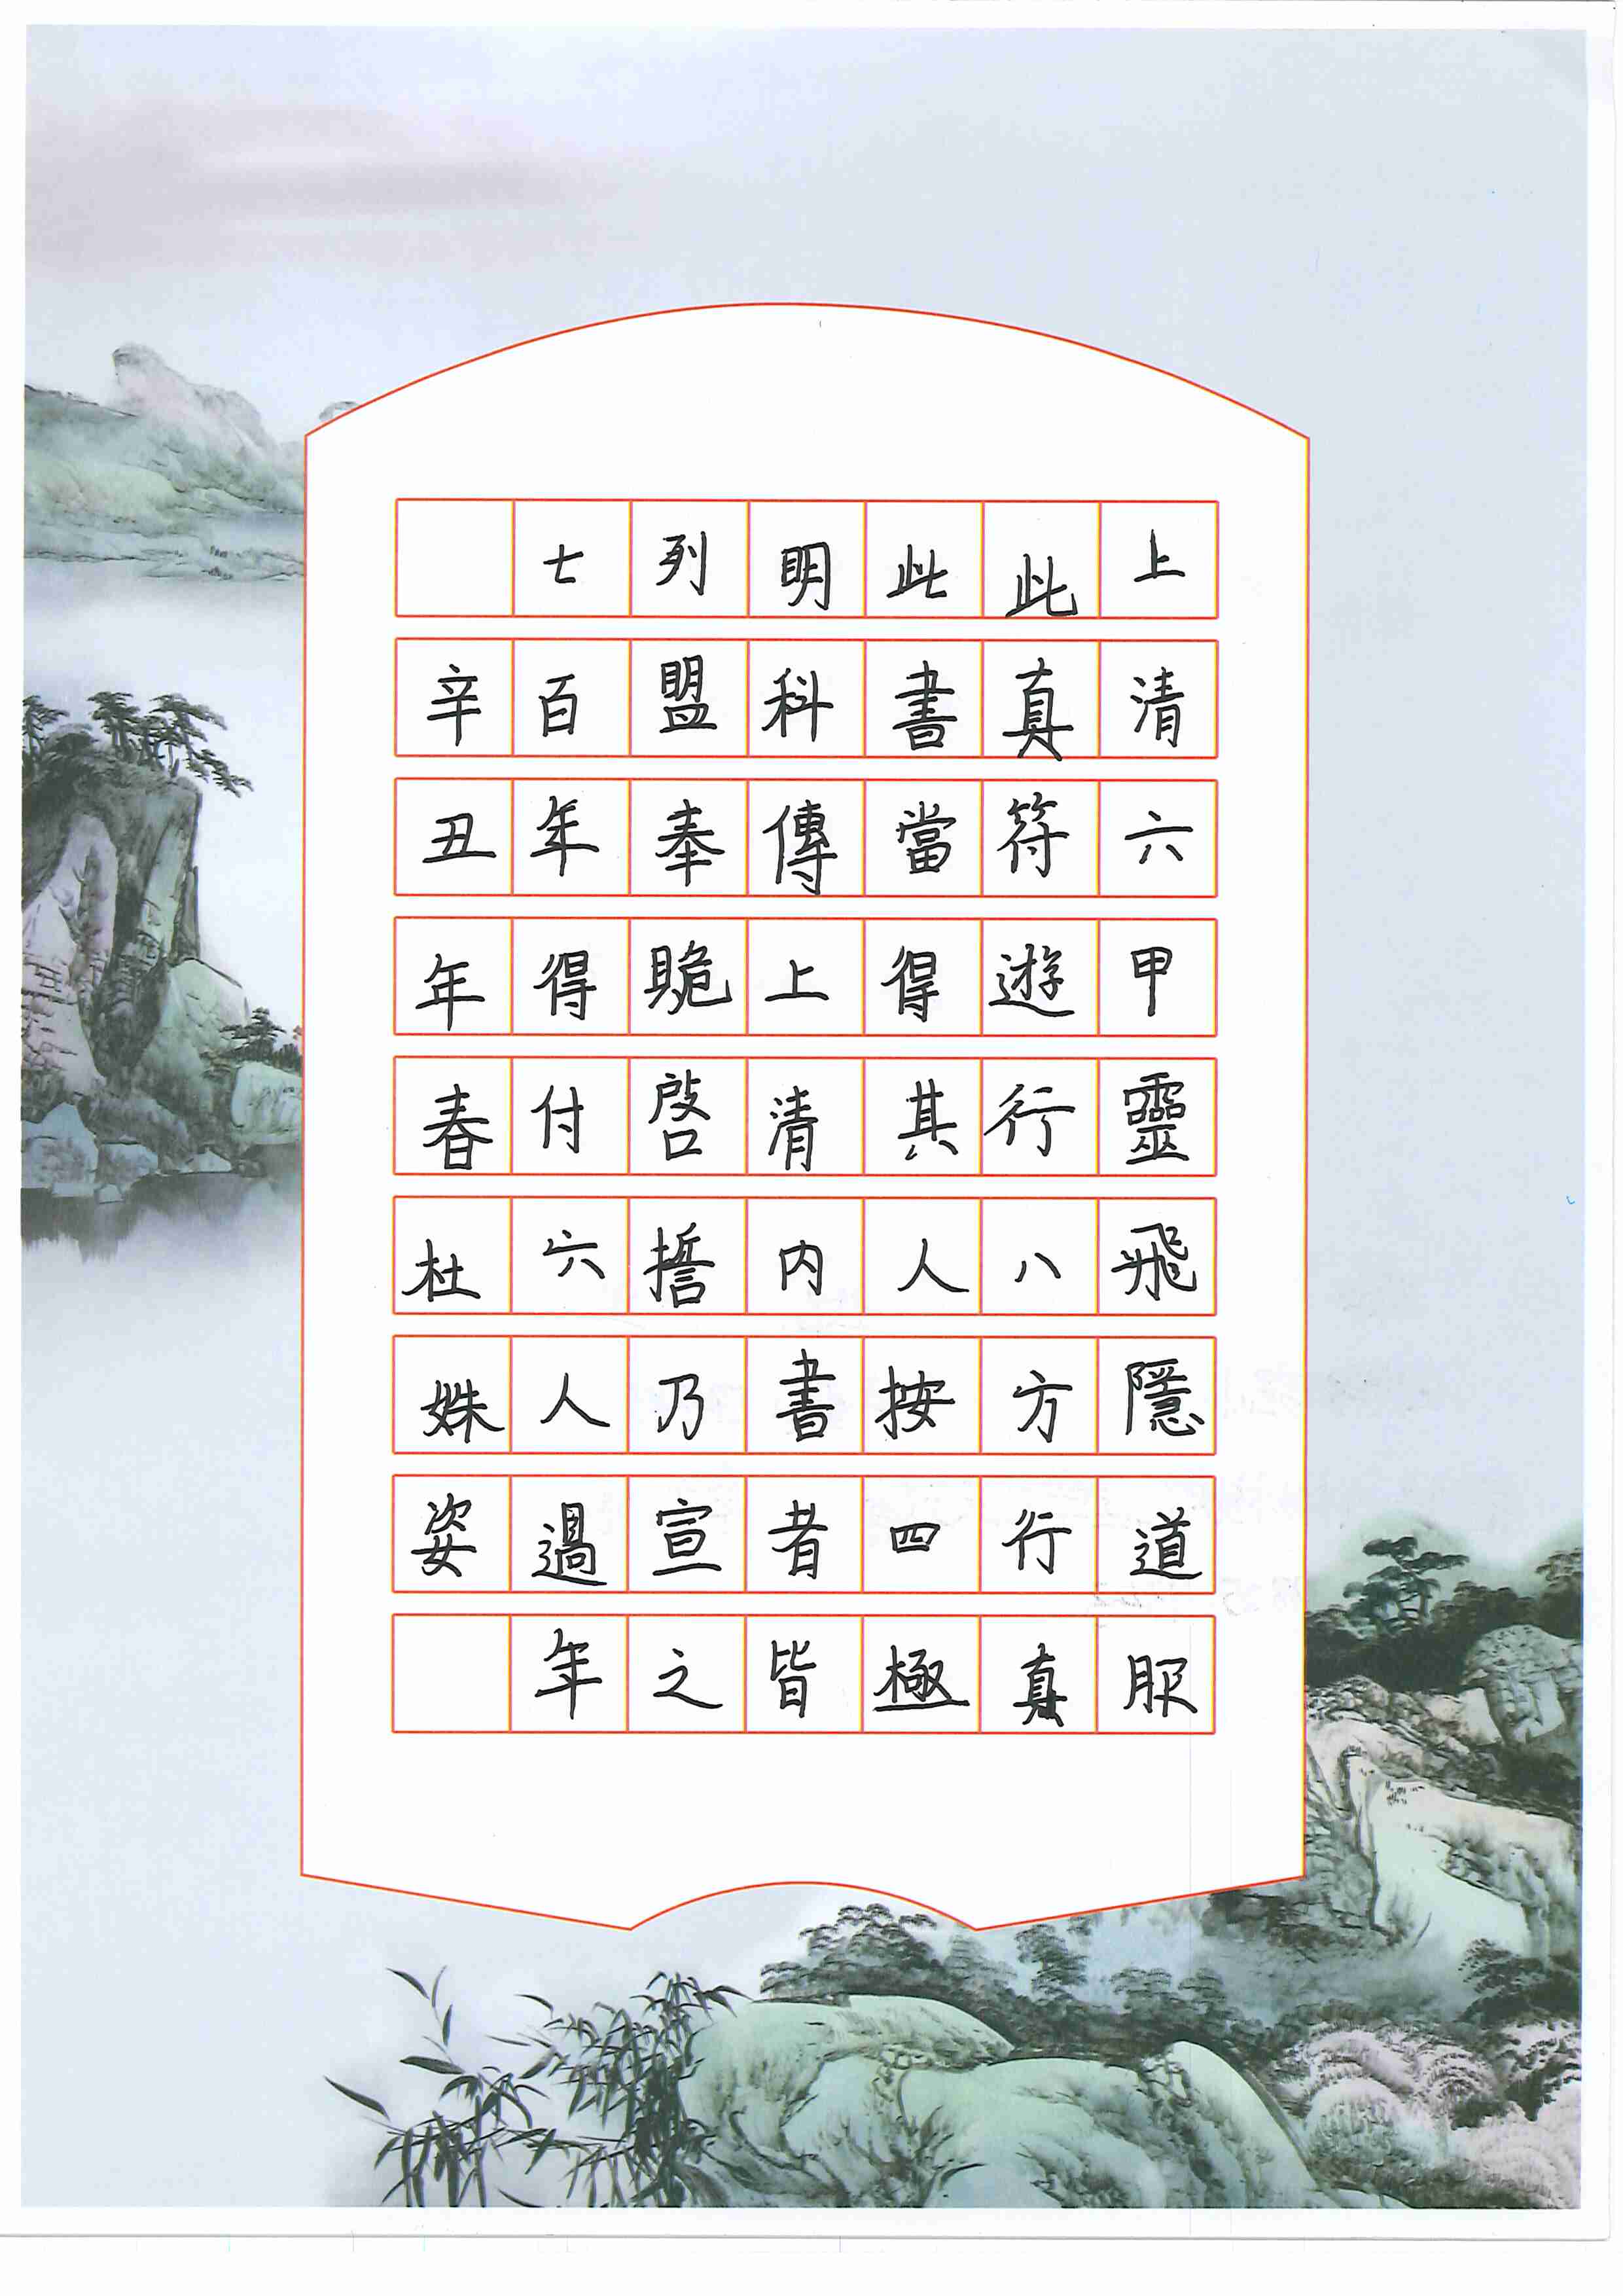 上清六甲靈飛隱道服
此真符遊行八方行真
此書當得其人按四極
明科傳上清內書者皆
列盟奉贍啓誓乃宣之
七百年得付六人過年
辛丑年春杜姝姿